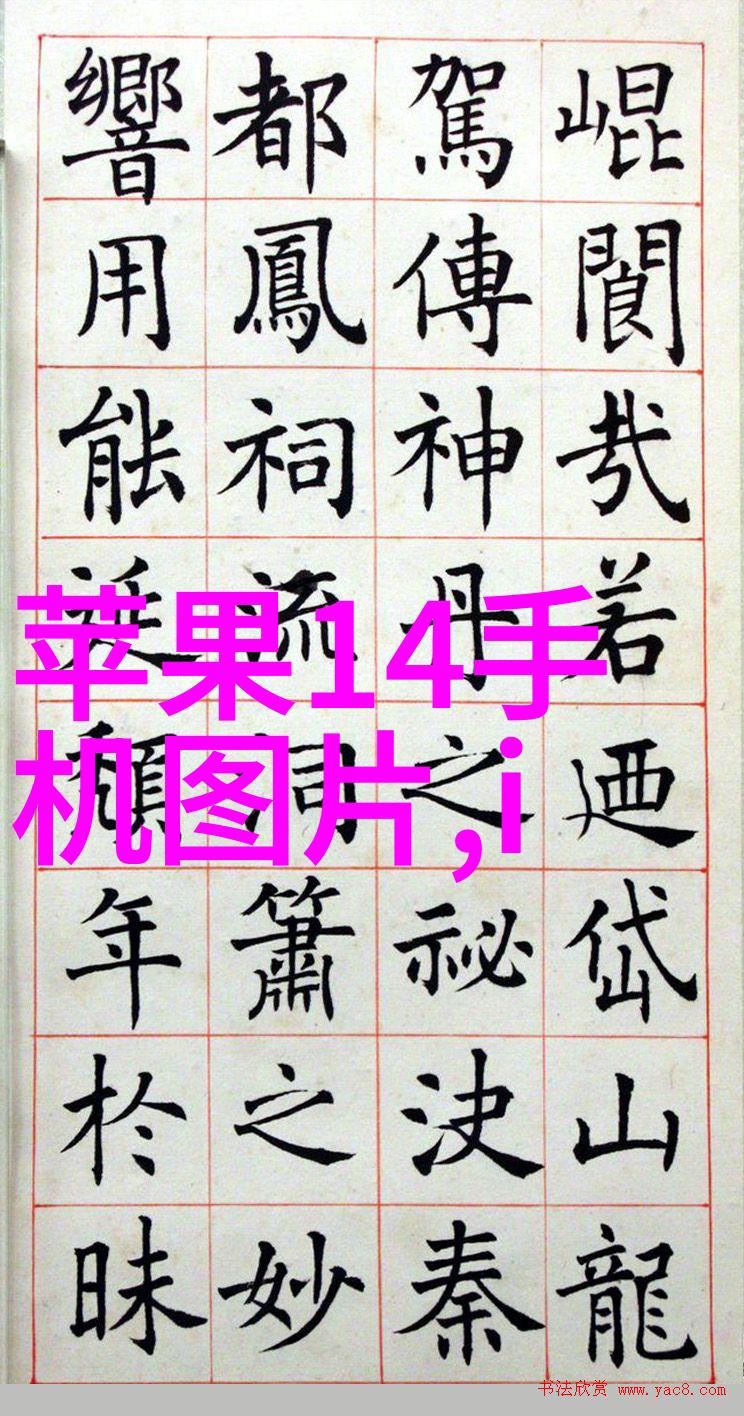 崐閬㦲若廼岱山龍
駕傳神丹之祕決秦
都鳳祠流洞簫之妙
響用能頹年於昧
苹果14手
机图片,i
书法欣赏 www.yac8.com